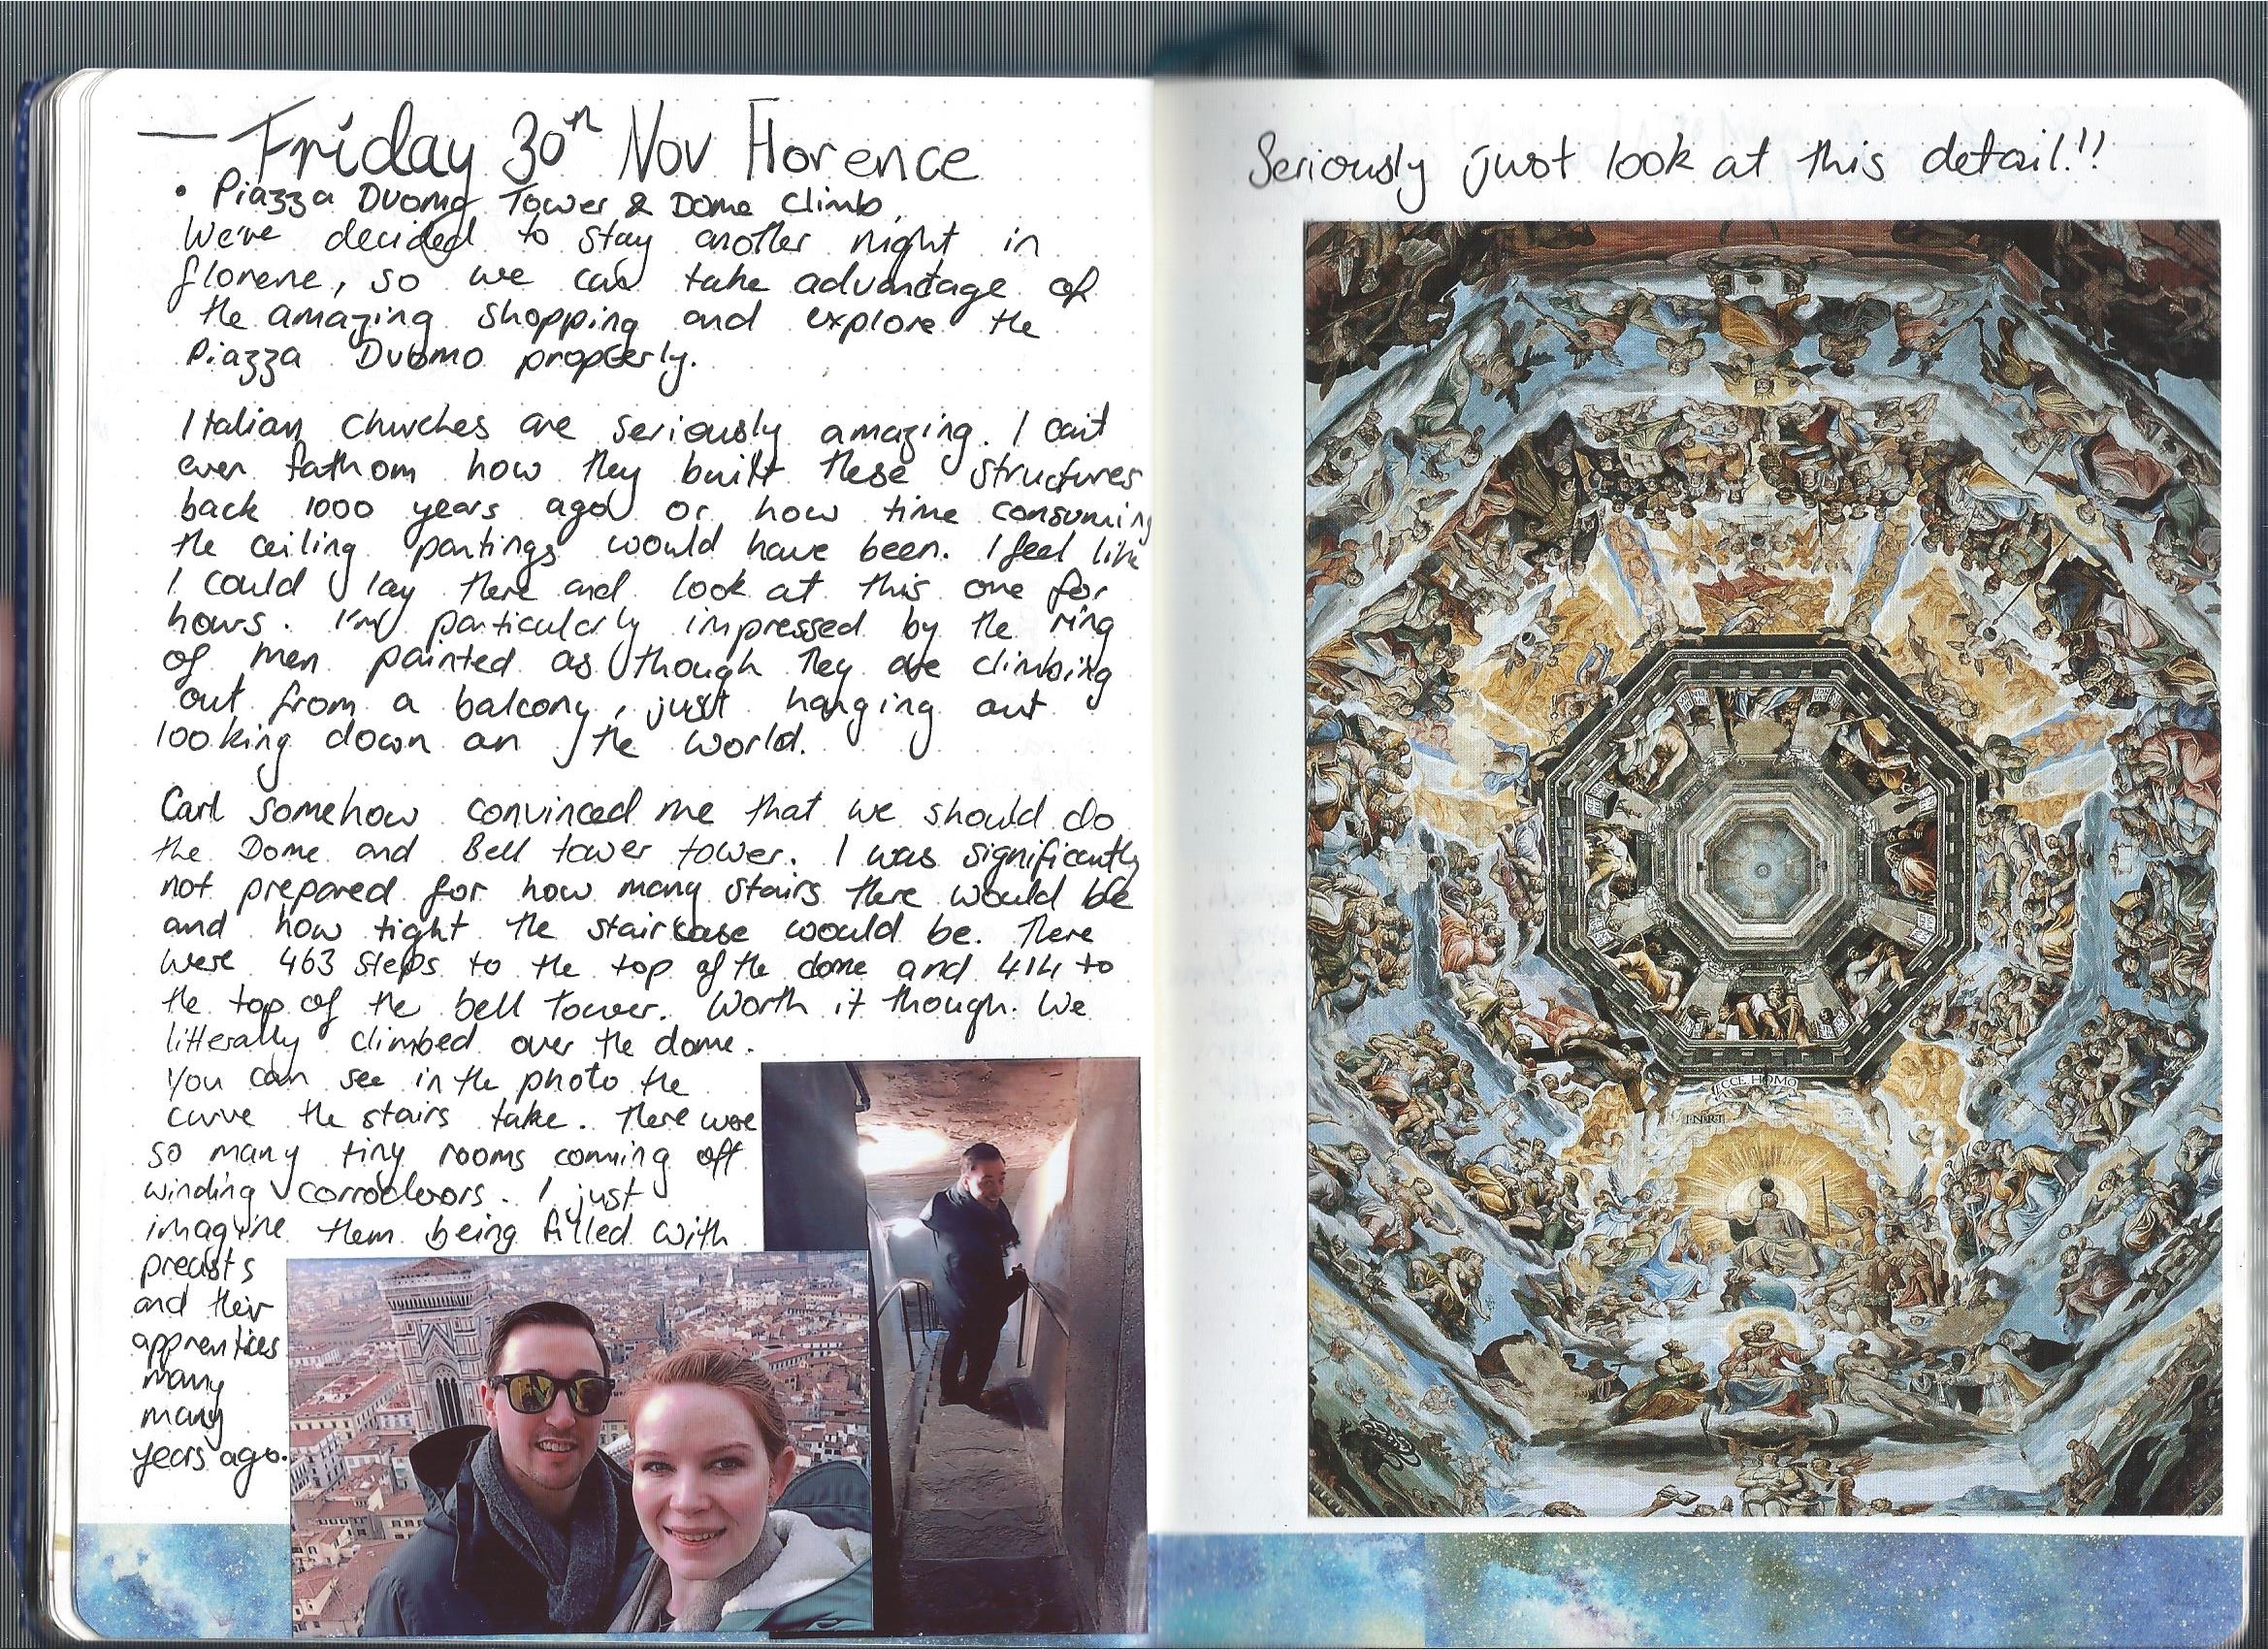 Friday 30th Nov Florence
• Piazza Duomo Tower & Dome Climb.
We've decided to stay another night in
florene, so we can take advantage of
the amazing shopping and explore the
Piazza Duomo properly.
Italian churches are seriously amazing. I can't
even fathom how they built these structures
back 1000 years ago or how time consuming
the ceiling pantings would have been. I feel like
I could lay there and look at this one for
hours. I'm particularly impressed by the ring
of men painted as though they are climbing
out from a balcony, just hanging out
looking down on the world.
Carl somehow convinced me that we should do
the Dome and Bell tower tower. I was significantly
not prepared for how many stairs there would be
and how tight the staircase would be. There
were 463 steps to the top of the dome and 414 to
the top of the bell tower. Worth it though. We
litterally climbed over the dome.
You can see in the photo the
curve the stairs take. There were
so many tiny rooms comming off
winding corrodoors. I just
imagine them being filled with
preasts
and their
apprentices
many
many
years ago.
Seriously just look at this detail!!
ECCE HOMO
INRI